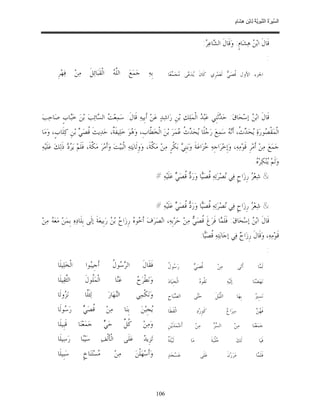 السِّيرَةُ النَّبَوِيَّةُ لِابْنِ هِشَامٍ
قَالَ ابْنُ هِشَامٍ: وَقَالَ الشَّاعِرُ:
قُصَيٌّ لَعَمْرِي كَانَ يُدْعَى مُجَمِّعًا
بِهِ جَمَعَ اللَّهُ الْقَبَائِلَ مِنْ فِهْرِ
قَالَ ابْنُ إسْحَاقَ: حَدَّثَنِي عَبْدُ الْمَلِكِ بْنِ رَاشِدٍ عَنْ أَبِيهِ قَالَ: سَمِعْتُ السَّائِبَ بْنَ خَبَّابٍ صَاحِبَ
الْمَقْصُورَةِ يُحَدِّثُ، أَنَّهُ سَمِعَ رَجُلًا يُحَدِّثُ عُمَرَ بْنَ الْخَطَّابِ، وَهُوَ خَلِيفَةٌ، حَدِيثَ قُصَيِّ بْنِ كِلَابٍ، وَمَا
جَمَعَ مِنْ أَمْرِ قَوْمِهِ، وَإِخْرَاجِهِ خُزَاعَةَ وَبَنِي بَكْرٍ مِنْ مَكَّةَ، وَوِلَايَتِهِ الْبَيْتَ وَأَمْرَ مَكَّةَ، فَلَمْ يَرُدَّ ذَلِكَ عَلَيْهِ
وَلَمْ يُنْكِرْهُ
شِعْرُ رِزَاحٍ فِي نُصْرَتِهِ قُصَيًّا وَرَدُّ قُصَيٍّ عَلَيْهِ
شِعْرُ رِزَاحٍ فِي نُصْرَتِهِ قُصَيًّا وَرَدُّ قُصَيٍّ عَلَيْهِ
قَالَ ابْنُ إسْحَاقَ: فَلَمَّا فَرَغَ قُصَيٌّ مِنْ حَرْبِهِ، انْصَرَفَ أَخُوهُ رِزَاحُ بْنُ رَبِيعَةَ إلَى بِلَادِهِ بِمَنْ مَعَهُ مِنْ
قَوْمِهِ، وَقَالَ رِزَاحٌ فِي إجَابَتِهِ قُصَيًّا:
لَمَّا أَتَى مِنْ قُصَيٍّ رَسُولٌ فَقَالَ الرَّسُولُ أَجِيبُوا الْخَلِيلَا
نَهَضْنَا إلَيْهِ نَقُودُ الْجِيَادَ وَنَطْرَحُ عَنَّا الْمَلُولَ الثَّقِيلَا
نَسِيرُ بِهَا اللَّيْلَ حَتَّى الصَّبَاحِ وَنَكْمِي النَّهَارَ لِئَلَّا نَزُولَا
فَهُنَّ سِرَاعٌ كَوِرْدِ الْقَطَا يُجِبْنَ بِنَا مِنْ قُصَيٍّ رَسُولَا
جَمَعْنَا مِنْ السِّرِّ مِنْ أَشْمَذَيْنِ وَمِنْ كُلِّ حَيٍّ جَمَعْنَا قَبِيلَا
فَيَا لَكَ حَلْبَةَ مَا لَيْلَةٌ تَزِيدُ عَلَى الْأَلْفِ سَيْبًا رَسِيلَا
فَلَمَّا مَرَرْنَ عَلَى عَسْجَدٍ وَأَسْهَلْنَ مِنْ مُسْتَنَاخٍ سَبِيلَا
106